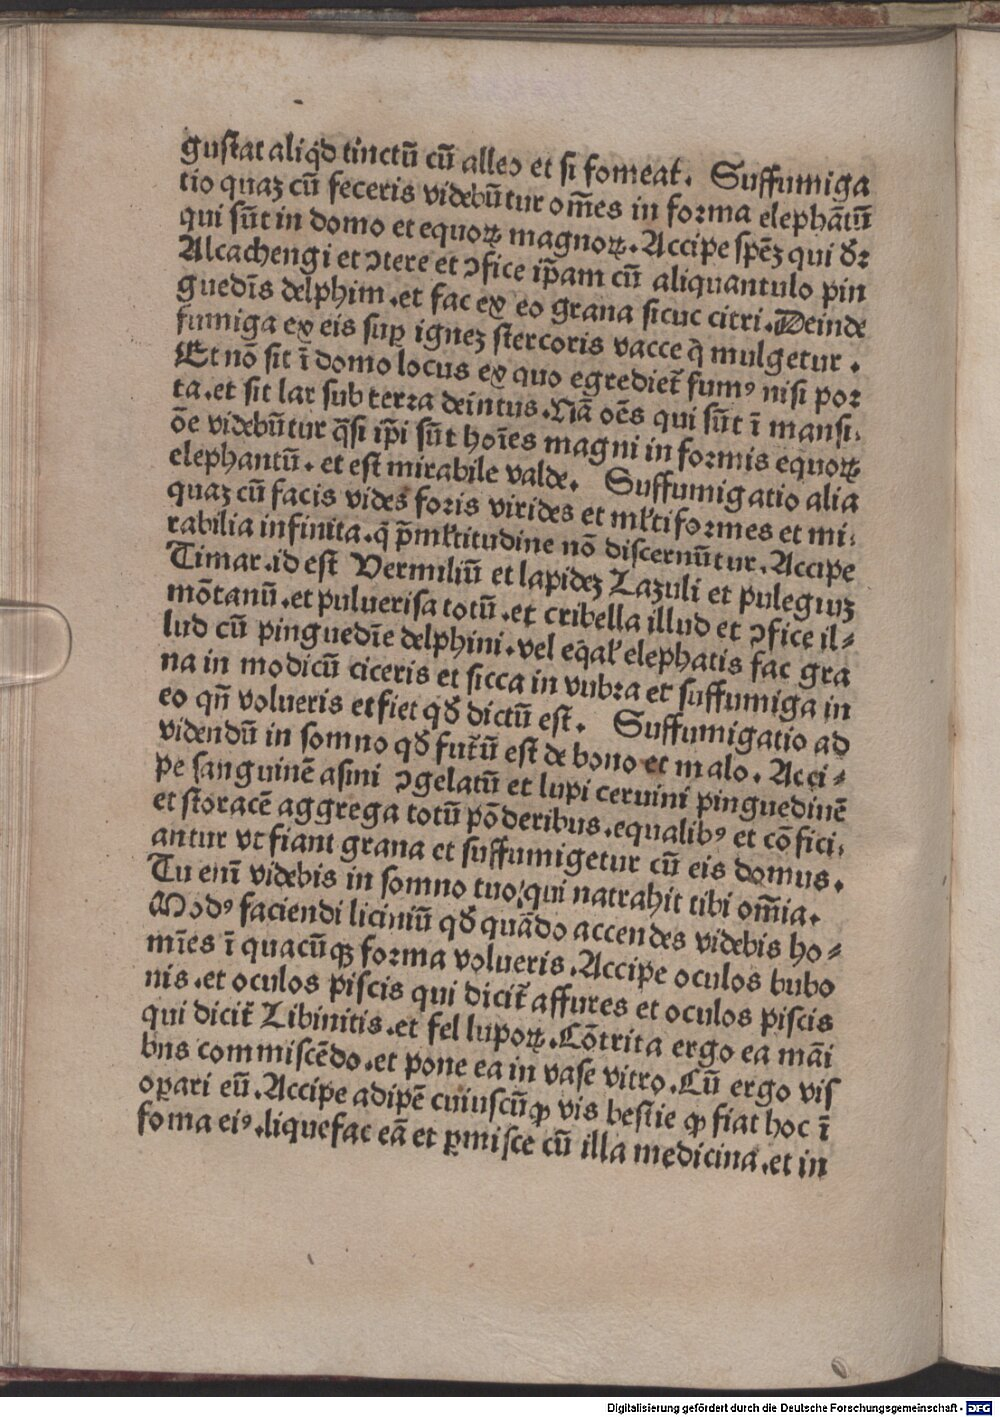 gustat aliqd tinctū cū alleɔ et si fomeat. Suffumiga
tio quaꝫ cū feceris videbūtur om̄es in forma elephātū
qui sūt in domo et equoꝝ magnoꝝ. Accipe spēꝫ qui dr
Alcachengi et ɔtere et ɔfice ip̄am cū aliquantulo pin
guedīs delphim. et fac ex eo grana sicuc citri. Deinde
fumiga ex eis suꝑ igneꝫ stercoris vacce q̄ mulgetur.
Et nō sit ī domo locus ex quo egrediet̄ fumꝰ nisi por
ta. et sit lar sub terra deintus. Nā oēs qui sūt ī mansi:
ōe videbūtur q̄si ip̄i sūt hoīes magni in formis equoꝝ
elephantū. et est mirabile valde. Suffumigatio alia
quaꝫ cū facis vides foris virides et ml̄tiformes et mi:
rabilia infinita. q̄ p̄ml̄titudine nō discernūtur. Accipe
Timar. id est Vermiliū et lapideꝫ Lazuli et pulegiuꝫ
mōtanū. et puluerisa totū. et cribella illud et ɔfice il⸗
lud cū pinguedīe delphini. vel eq̄al̄ elephatis fac gra
na in modicū ciceris et sicca in vubra et suffumiga in
eo qn̄ volueris et fiet qd̄ dictū est. Suffumigatio ad
videndū in somno qd̄ fut̄ū est de bono et malo. Acci⸗
pe sanguinē asini ɔgelatū et lupi ceruini pinguedinē
et storacē aggrega totū pōderibus. equalibꝰ et cōfici:
antur vt fiant grana et suffumigetur cū eis domus.
Tu enī videbis in somno tuo: qui natrahit tibi om̄ia.
Modꝰ faciendi liciniū qd̄ quādo accendes videbis ho⸗
mīes ī quacūqꝫ forma volueris. Accipe oculos bubo
nis. et oculos piscis qui dicit̄ affures et oculos piscis
qui dicit̄ Libinitis. et fel lupoꝝ. Cōtrita ergo ea māi
bns commiscēdo. et pone ea in vase vitro. Cū ergo vis
oꝑari eū. Accipe adipē cuiuscūꝙ vis bestie ꝙ fiat hoc ī
foma eiꝰ. liquefac eā et ꝑmisce cū illa medicina. et in
Digitalisierung gefördert durch die Deutsche Forschungsgemeinschaft - DFG